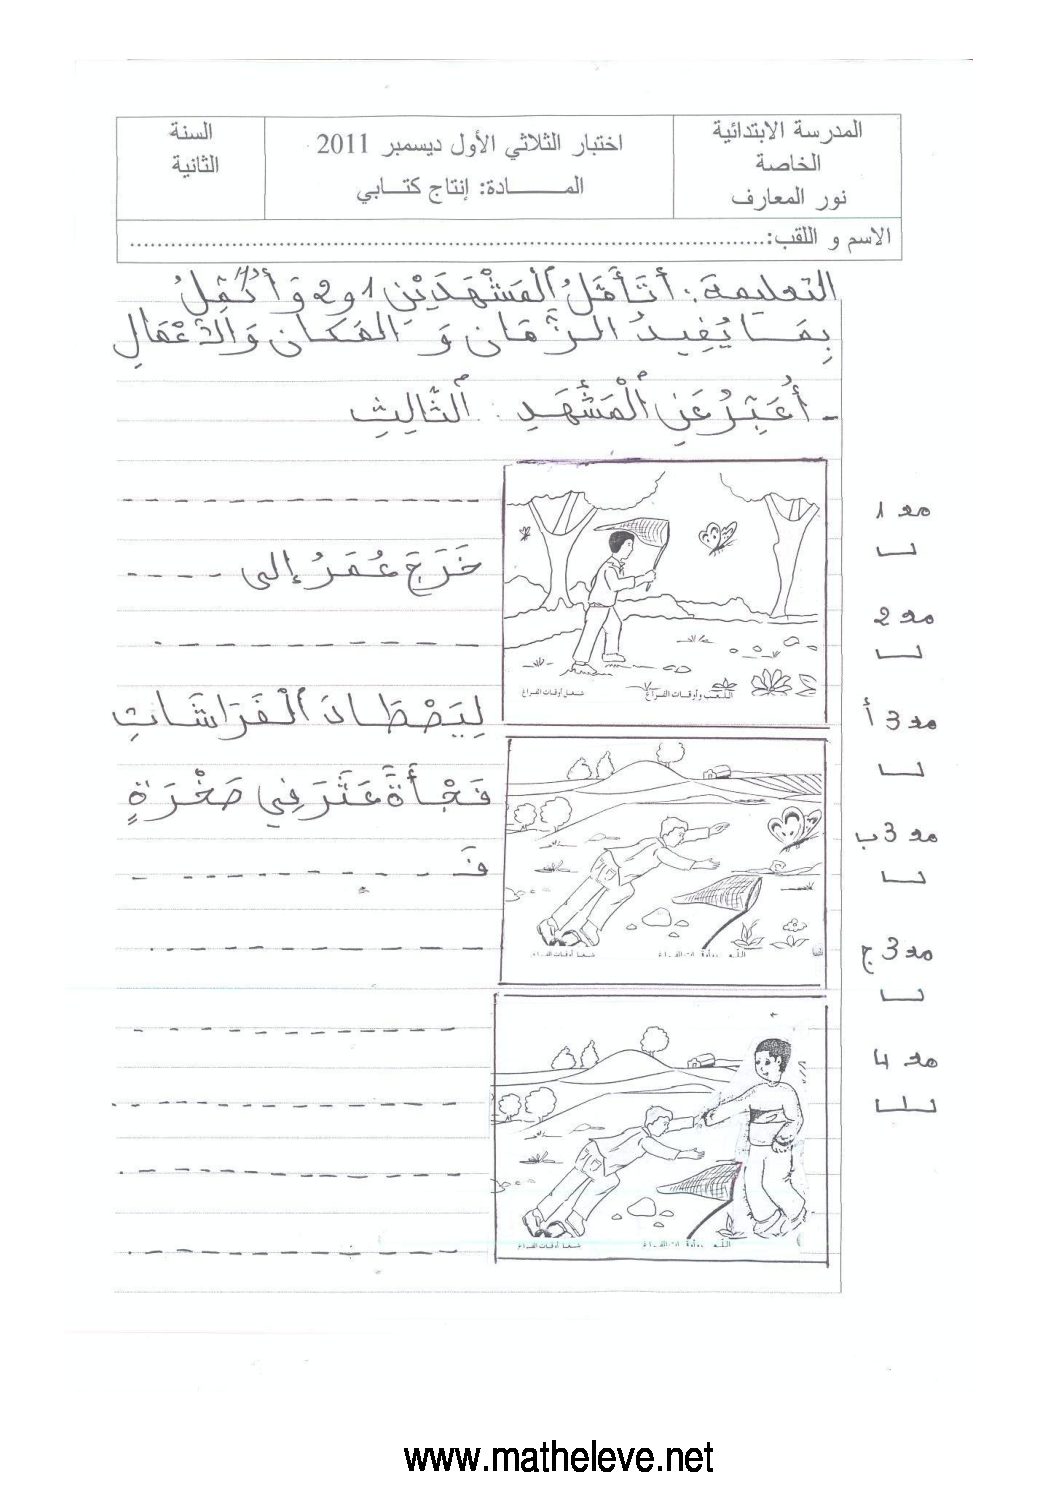 المدرسة الابتدائية
الخاصة
نور المعارف
اختبار الثلاثي الأول ديسمبر 2011
المـــــــادة: إنتاج كتـــابي
السنة
الثانية
الاسم و اللقب:......................................................................................
التعليمة: أَتَأَمَّلُ الْمَشْهَدَيْنِ 1 و 2 وَ أُكْمِلُ
بِمَا يُفِيدُ الزَّمَانِ وَ المَكَانِ وَالأَعْمَالِ
- أُعَبِّرُ عَنِ الْمَشْهَدِ : الثَّالِثِ
خَرَجَ عُمَرُ إلى - - - -
لِيَصْطَادَ الْفَرَاشَاتِ
فَجْأَةً عَثَرَ فِي صَخْرَةٍ
فَـ - - - - - - - - -
اللعب وأوقات الفراغ
شغل أوقات الفراغ
مع 1
مع 2
مع 3 أ
مع 3 ب
مع 3 ج
مع 4
www.matheleve.net